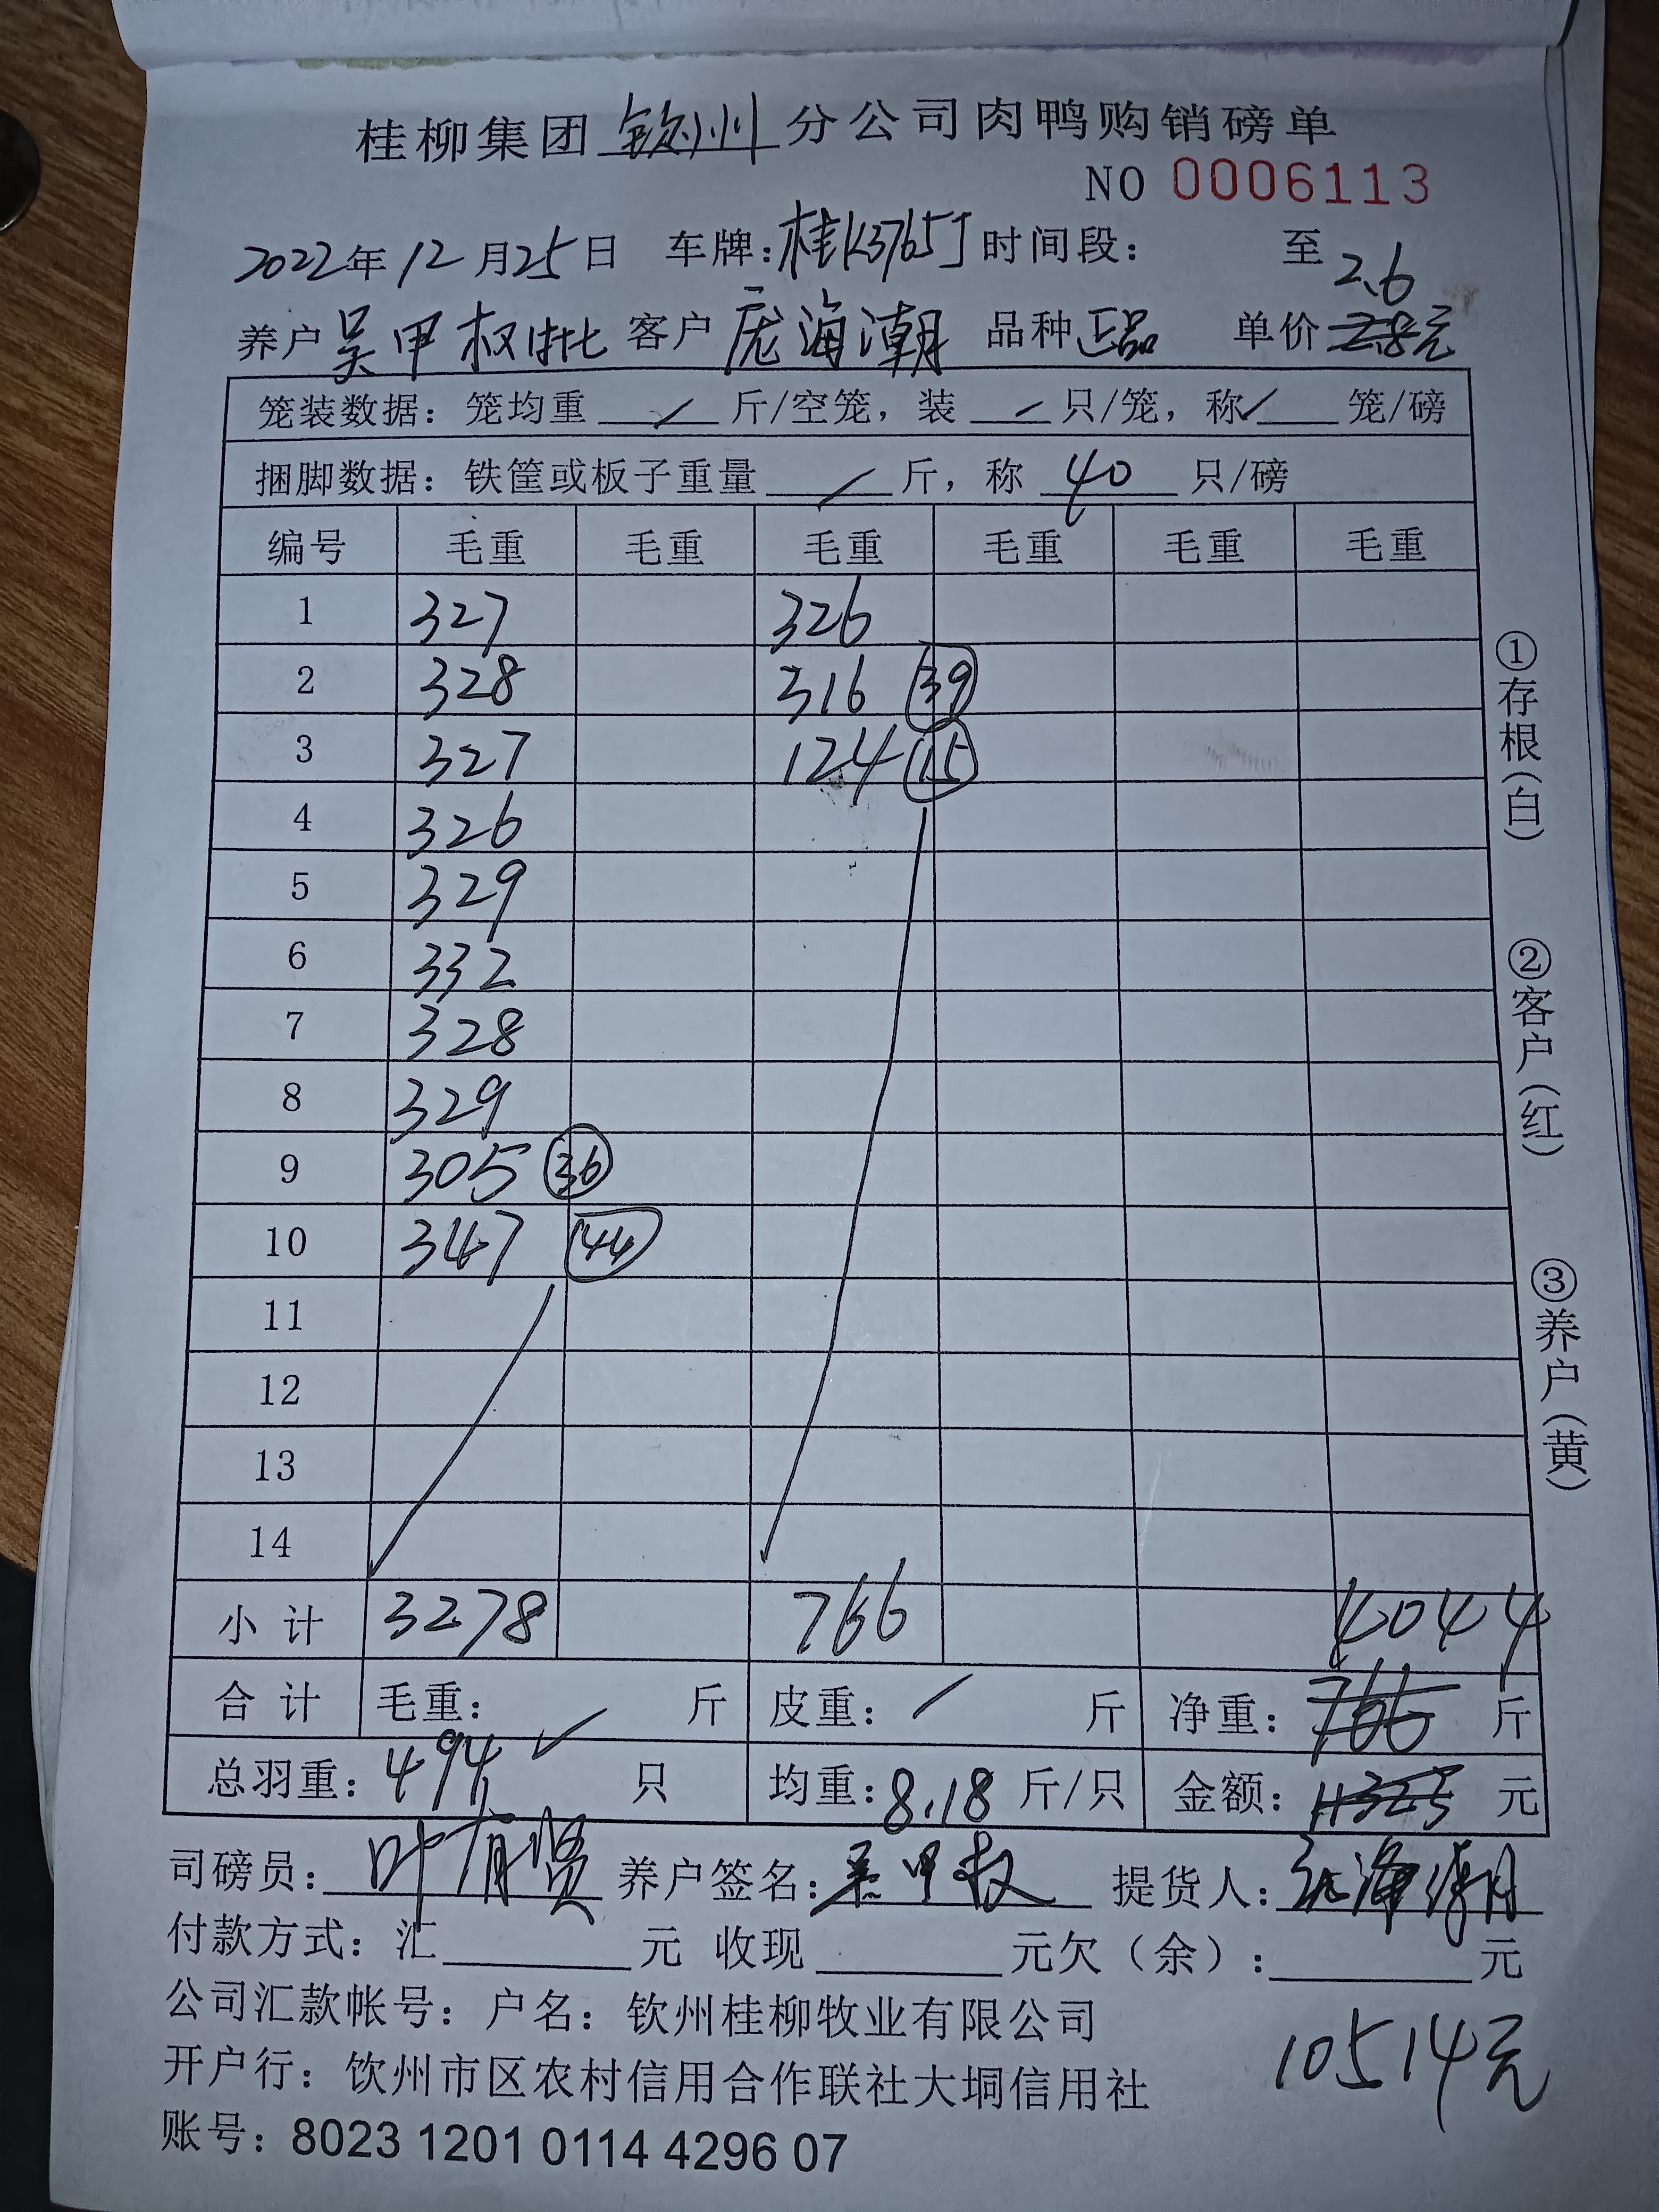 桂柳集团 钦州 分公司肉鸭购销磅单
NO 0006113
2022年12月25日 车牌:桂K3765J 时间段: 至
2.6
养户 吴甲权 客户 庞海潮 品种 正品 单价 2.8元
笼装数据:笼均重 / 斤/空笼,装 / 只/笼,称 / 笼/磅
捆脚数据:铁筐或板子重量 / 斤,称 40 只/磅
编号 毛重 毛重 毛重 毛重 毛重 毛重
1 327 326
2 328 316 39
3 327 124 15
4 326
5 329
6 332
7 328
8 329
9 305 36
10 347 44
11
12
13
14
小计 3278 766 4044
合计 毛重: 斤 皮重: / 斤 净重: 766 斤
总羽重: 494 只 均重: 8.18 斤/只 金额: 11325 元
司磅员: 叶有贤 养户签名: 吴甲权 提货人:
付款方式:汇 元 收现 元欠(余): 元
公司汇款帐号:户名:钦州桂柳牧业有限公司
10514元
开户行:钦州市区农村信用合作联社大垌信用社
账号:8023 1201 0114 4296 07
①存根(白)
②客户(红)
③养户(黄)